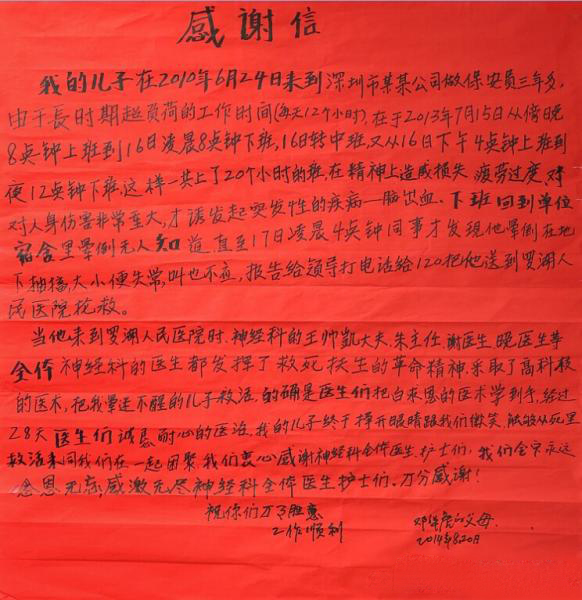 感谢信
我的儿子在2010年6月24日来到深圳市某某公司做保安员三年多,
由于長时期超负荷的工作时间(每天12个小时),在于2013年7月15日从傍晚
8点钟上班到16日凌晨8点钟下班,16日转中班,又从16日下午4点钟上班到
夜12点钟下班,这样一共上了20个小时的班,在精神上造成损失,疲劳过度,对
对人身伤害非常重大,才诱发起突发性的疾病—脑出血。下班回到单位
宿舍里晕倒无人知道,直至17日凌晨4点钟同事才发现他晕倒在地
下抽搐,大小便失常,叫也不应,报告给领导打电话给120把他送到罗湖人
民医院抢救。
当他来到罗湖人民医院时,神经科的王帅凯大夫、朱主任、谢医生、晓医生等
全体神经科的医生都发挥了救死扶生的革命精神,采取了高科技
的医术,把我晕迷不醒的儿子救活,的确是医生们把白求恩的医术学到手,经过
28天医生们诚恳耐心的医治,我的儿子终于挣开眼睛跟我们微笑,能够从死里
救活来同我们在一起团聚,我们衷心感谢神经科全体医生、护士们,我们全家永远
念恩无忘,感激无尽神经科全体医生护士们,万分感谢!
祝你们万事胜意
工作顺利
的父母
2014年8.20日